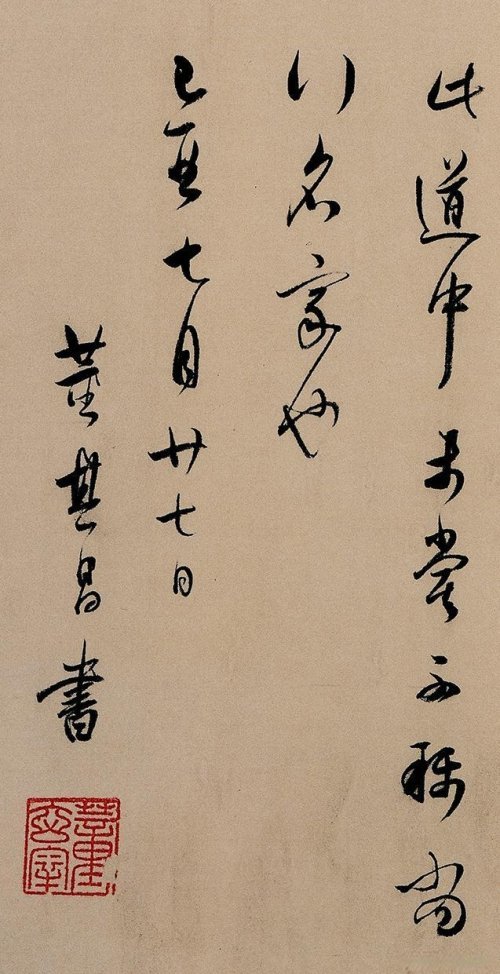 此道中未嘗不稱當
行名家也
己亥七月廿七日
董其昌書